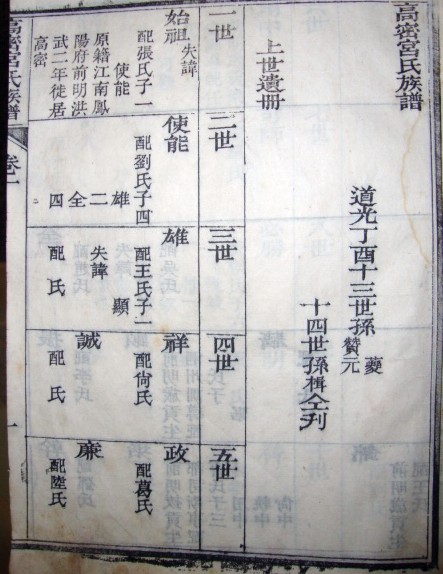 高密宮氏族譜
道光丁酉十三世孫贊元
夔
十四世孫楫仝刊
上世遺冊
一世
始祖失諱
配張氏子一
使能
原籍江南鳳
陽府前明洪
武二年徙居
高密
二世
使能
配劉氏子四
雄
二
全
四
三世
雄
配王氏子一
顯
失諱
配 氏
四世
祥
配尙氏
誠
配 氏
五世
政
配葛氏
廉
配陸氏
高密宮氏族譜
卷一
一